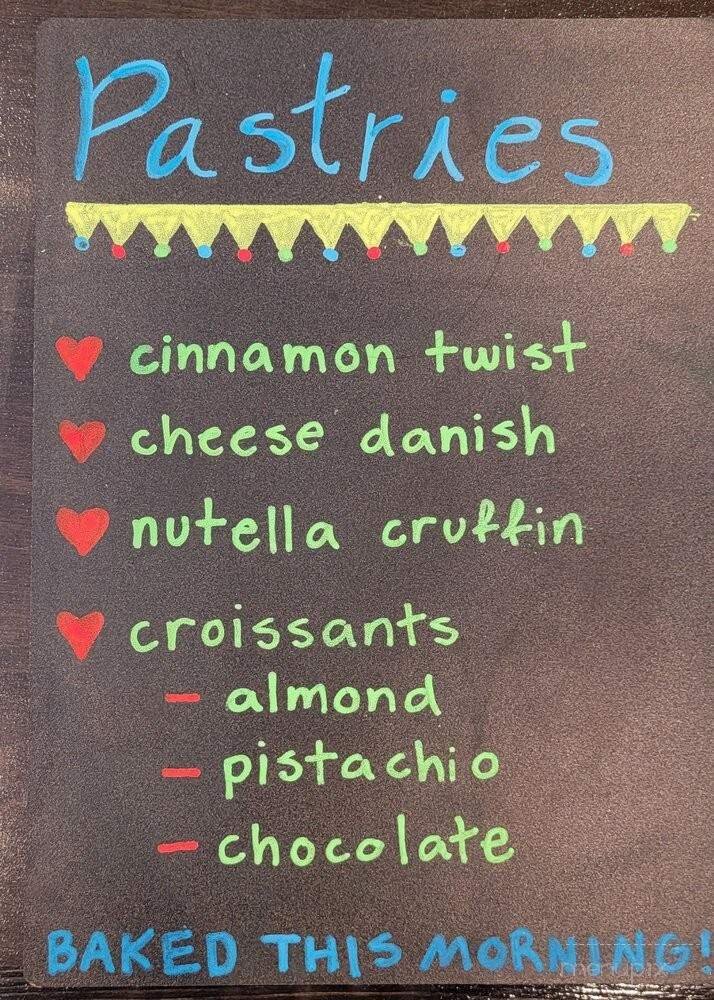 Pastries
cinnamon twist
cheese danish
nutella cruffin
croissants
- almond
- pistachio
- chocolate
BAKED THIS MORNING!
menupix